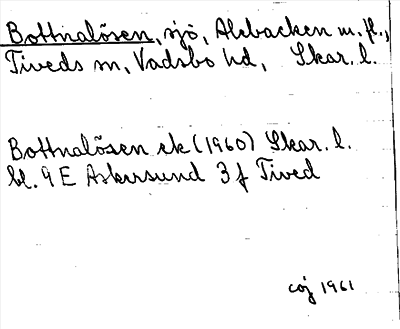 Bottnalösen, sjö, Alsbacken m. fl.,
Tiveds sn, Vadsbo hd, Skar. l.
Bottnalösen ek (1960) Skar. l.
bl. 9 E Askersund 3 f Tived
1961